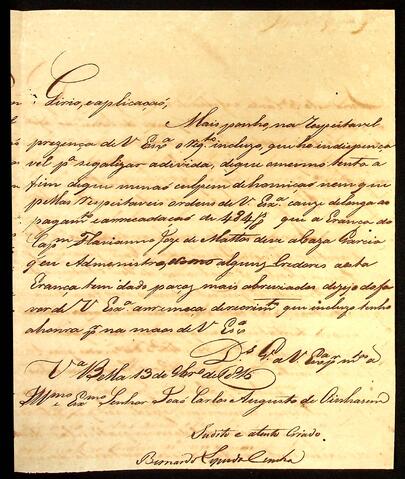 Girio, e aplicação,
Mais ponho, na respeitavel
prezença de V Exª o Rqᵗᵒ incluzo, que he indispença
vel pª legalizar adivida, digue o mesmo tenho a
fim digue
pellas respeitaveis ordens de V. Exª cauze delonga ao
pagamᵗᵒ earrecadacaõ de 484/8ª que a Erança do
Capᵐ Flavianno Joze de Mattos deve abaza Garcia
que Administro, como alguns Credores aesta
Erança tem dado paços mais abreviados dezejo do fa
vor de V Exª a remeça do que incluzo tenho
ahonra pª na maos de V Exª
Dˢ Gᵉ a V Exª mᵗᵒˢ aˢ
Vª Bella 13 de 9brº de 1816
Illmo e Exmo Senhor Joaõ Carlos Augusto de Oienhausen
Subdito e atento Criado
Bernardo Lopes da Cunha